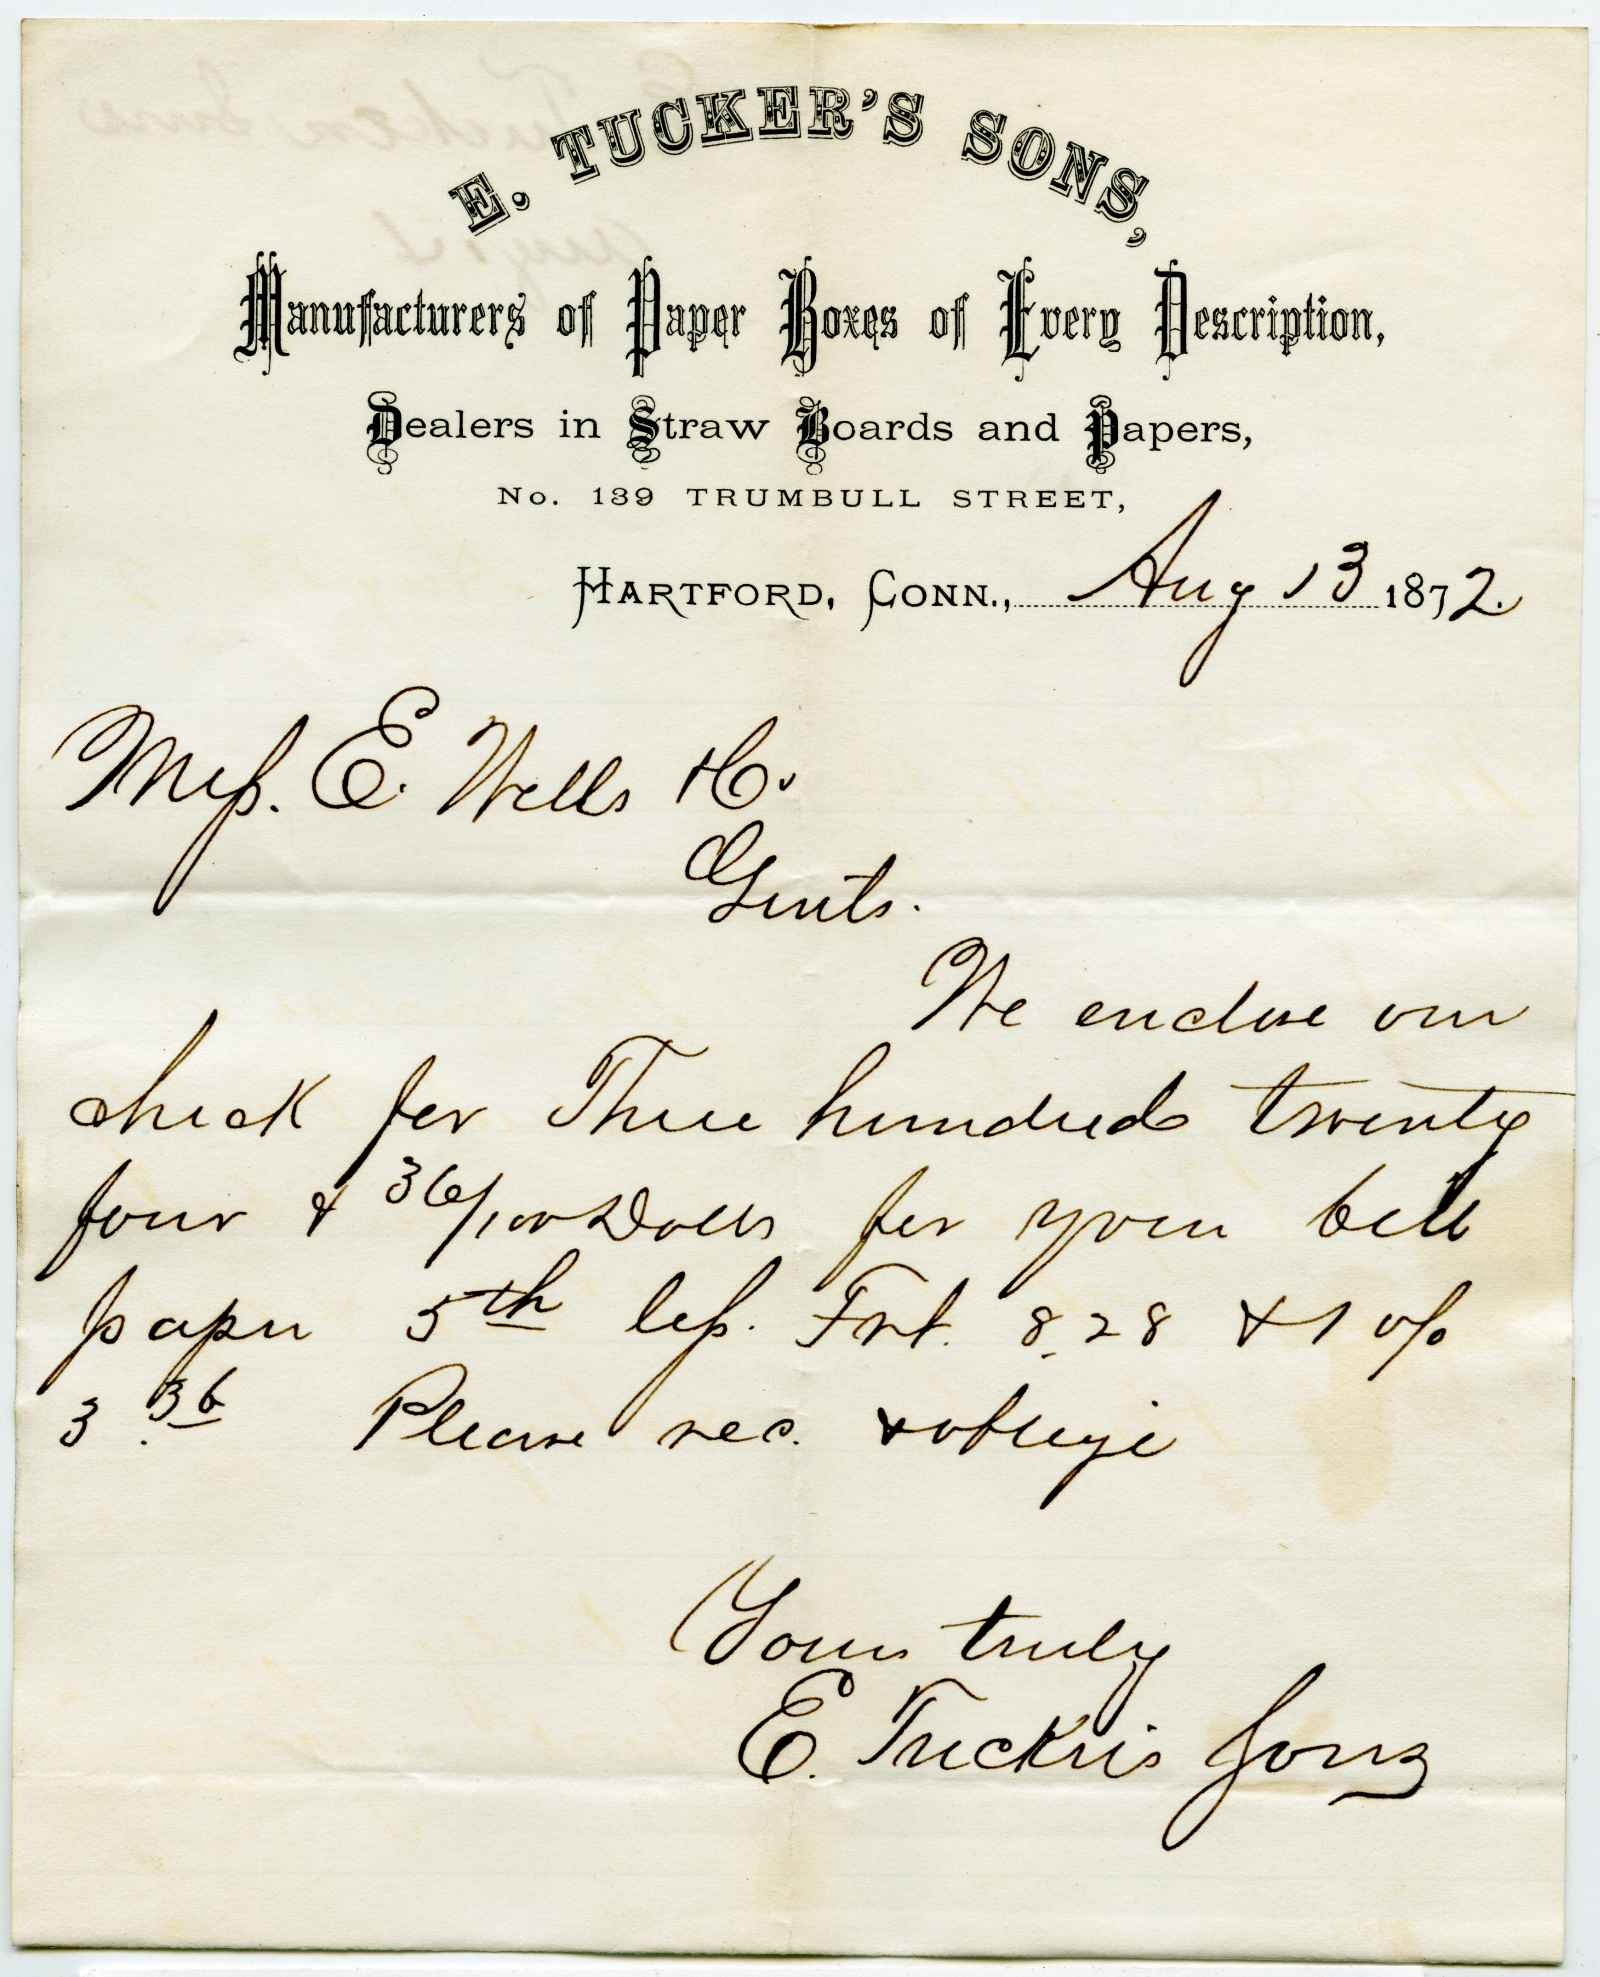 E. TUCKER'S SONS,
Manufacturers of Paper Boxes of Every Description,
Dealers in Straw Boards and Papers,
No. 139 TRUMBULL STREET,
HARTFORD, CONN., Aug 13 1872.
Mess. E. Wells &Co.
Gents.
We enclose our
check for Three hundred twenty
four & 36/100 Dolls for your bill
paper 5th less. Frt. 8.28 & 1 %
3.36 Please rec. & oblige
Yours truly
E. Tucker's Sons